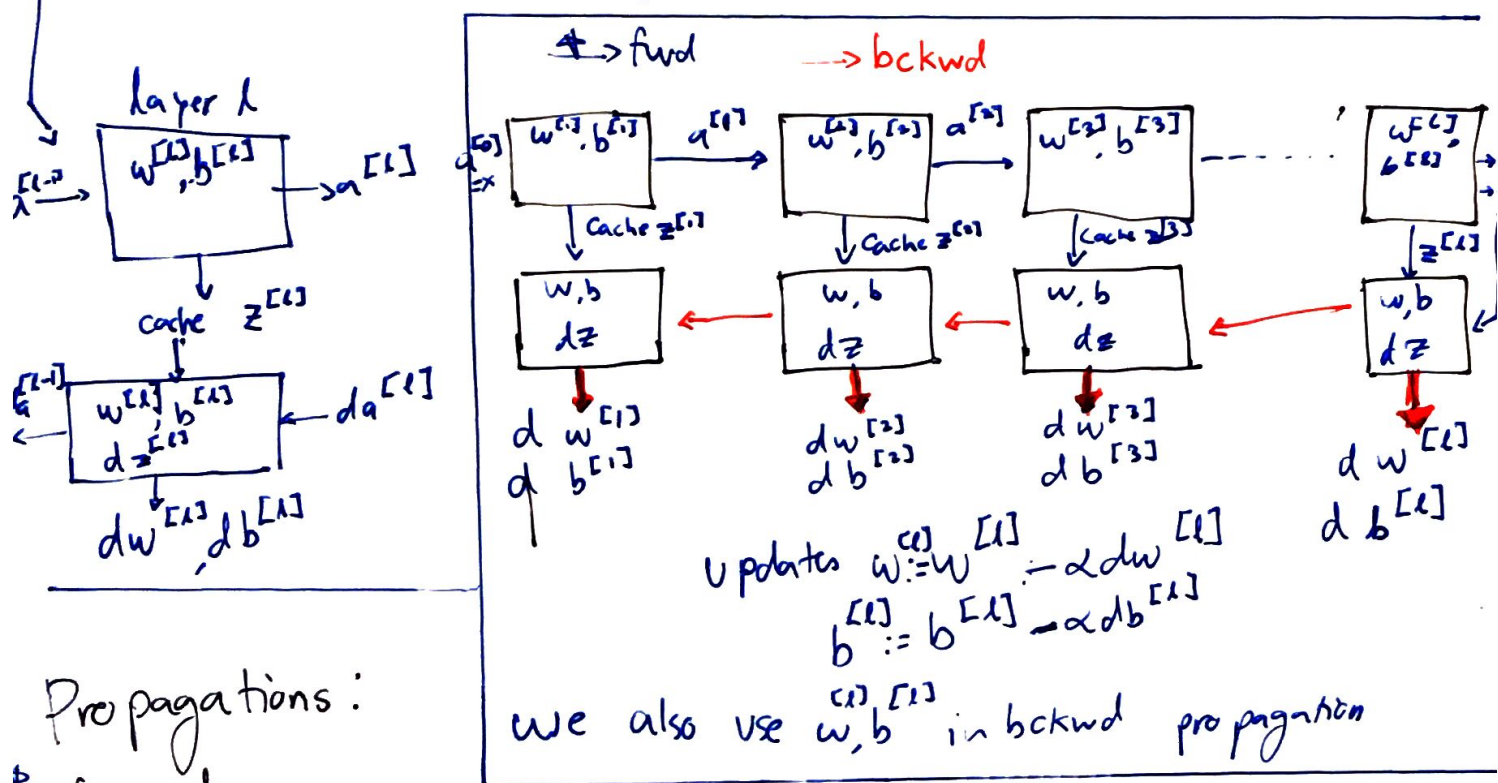 layer l
w^[l], b^[l]
a^[l]
cache z^[l]
w^[l], b^[l]
dz^[l]
da^[l]
dw^[l], db^[l]
Propagations:
→ fwd
→ bckwd
a^[0]
=x
w^[1], b^[1]
a^[1]
w^[2], b^[2]
a^[2]
w^[3], b^[3]
w^[l],
b^[l]
Cache z^[1]
Cache z^[2]
Cache z^[3]
z^[l]
w,b
dz
w,b
dz
w,b
dz
w,b
dz
dw^[1]
db^[1]
dw^[2]
db^[2]
dw^[3]
db^[3]
dw^[l]
db^[l]
updates w^[l] := w^[l] - αdw^[l]
b^[l] := b^[l] - αdb^[l]
we also use w^[l], b^[l] in bckwd propagation